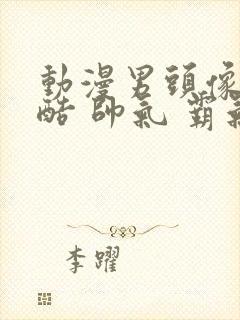 動漫男頭像
酷 帥氣 霸氣
李曜